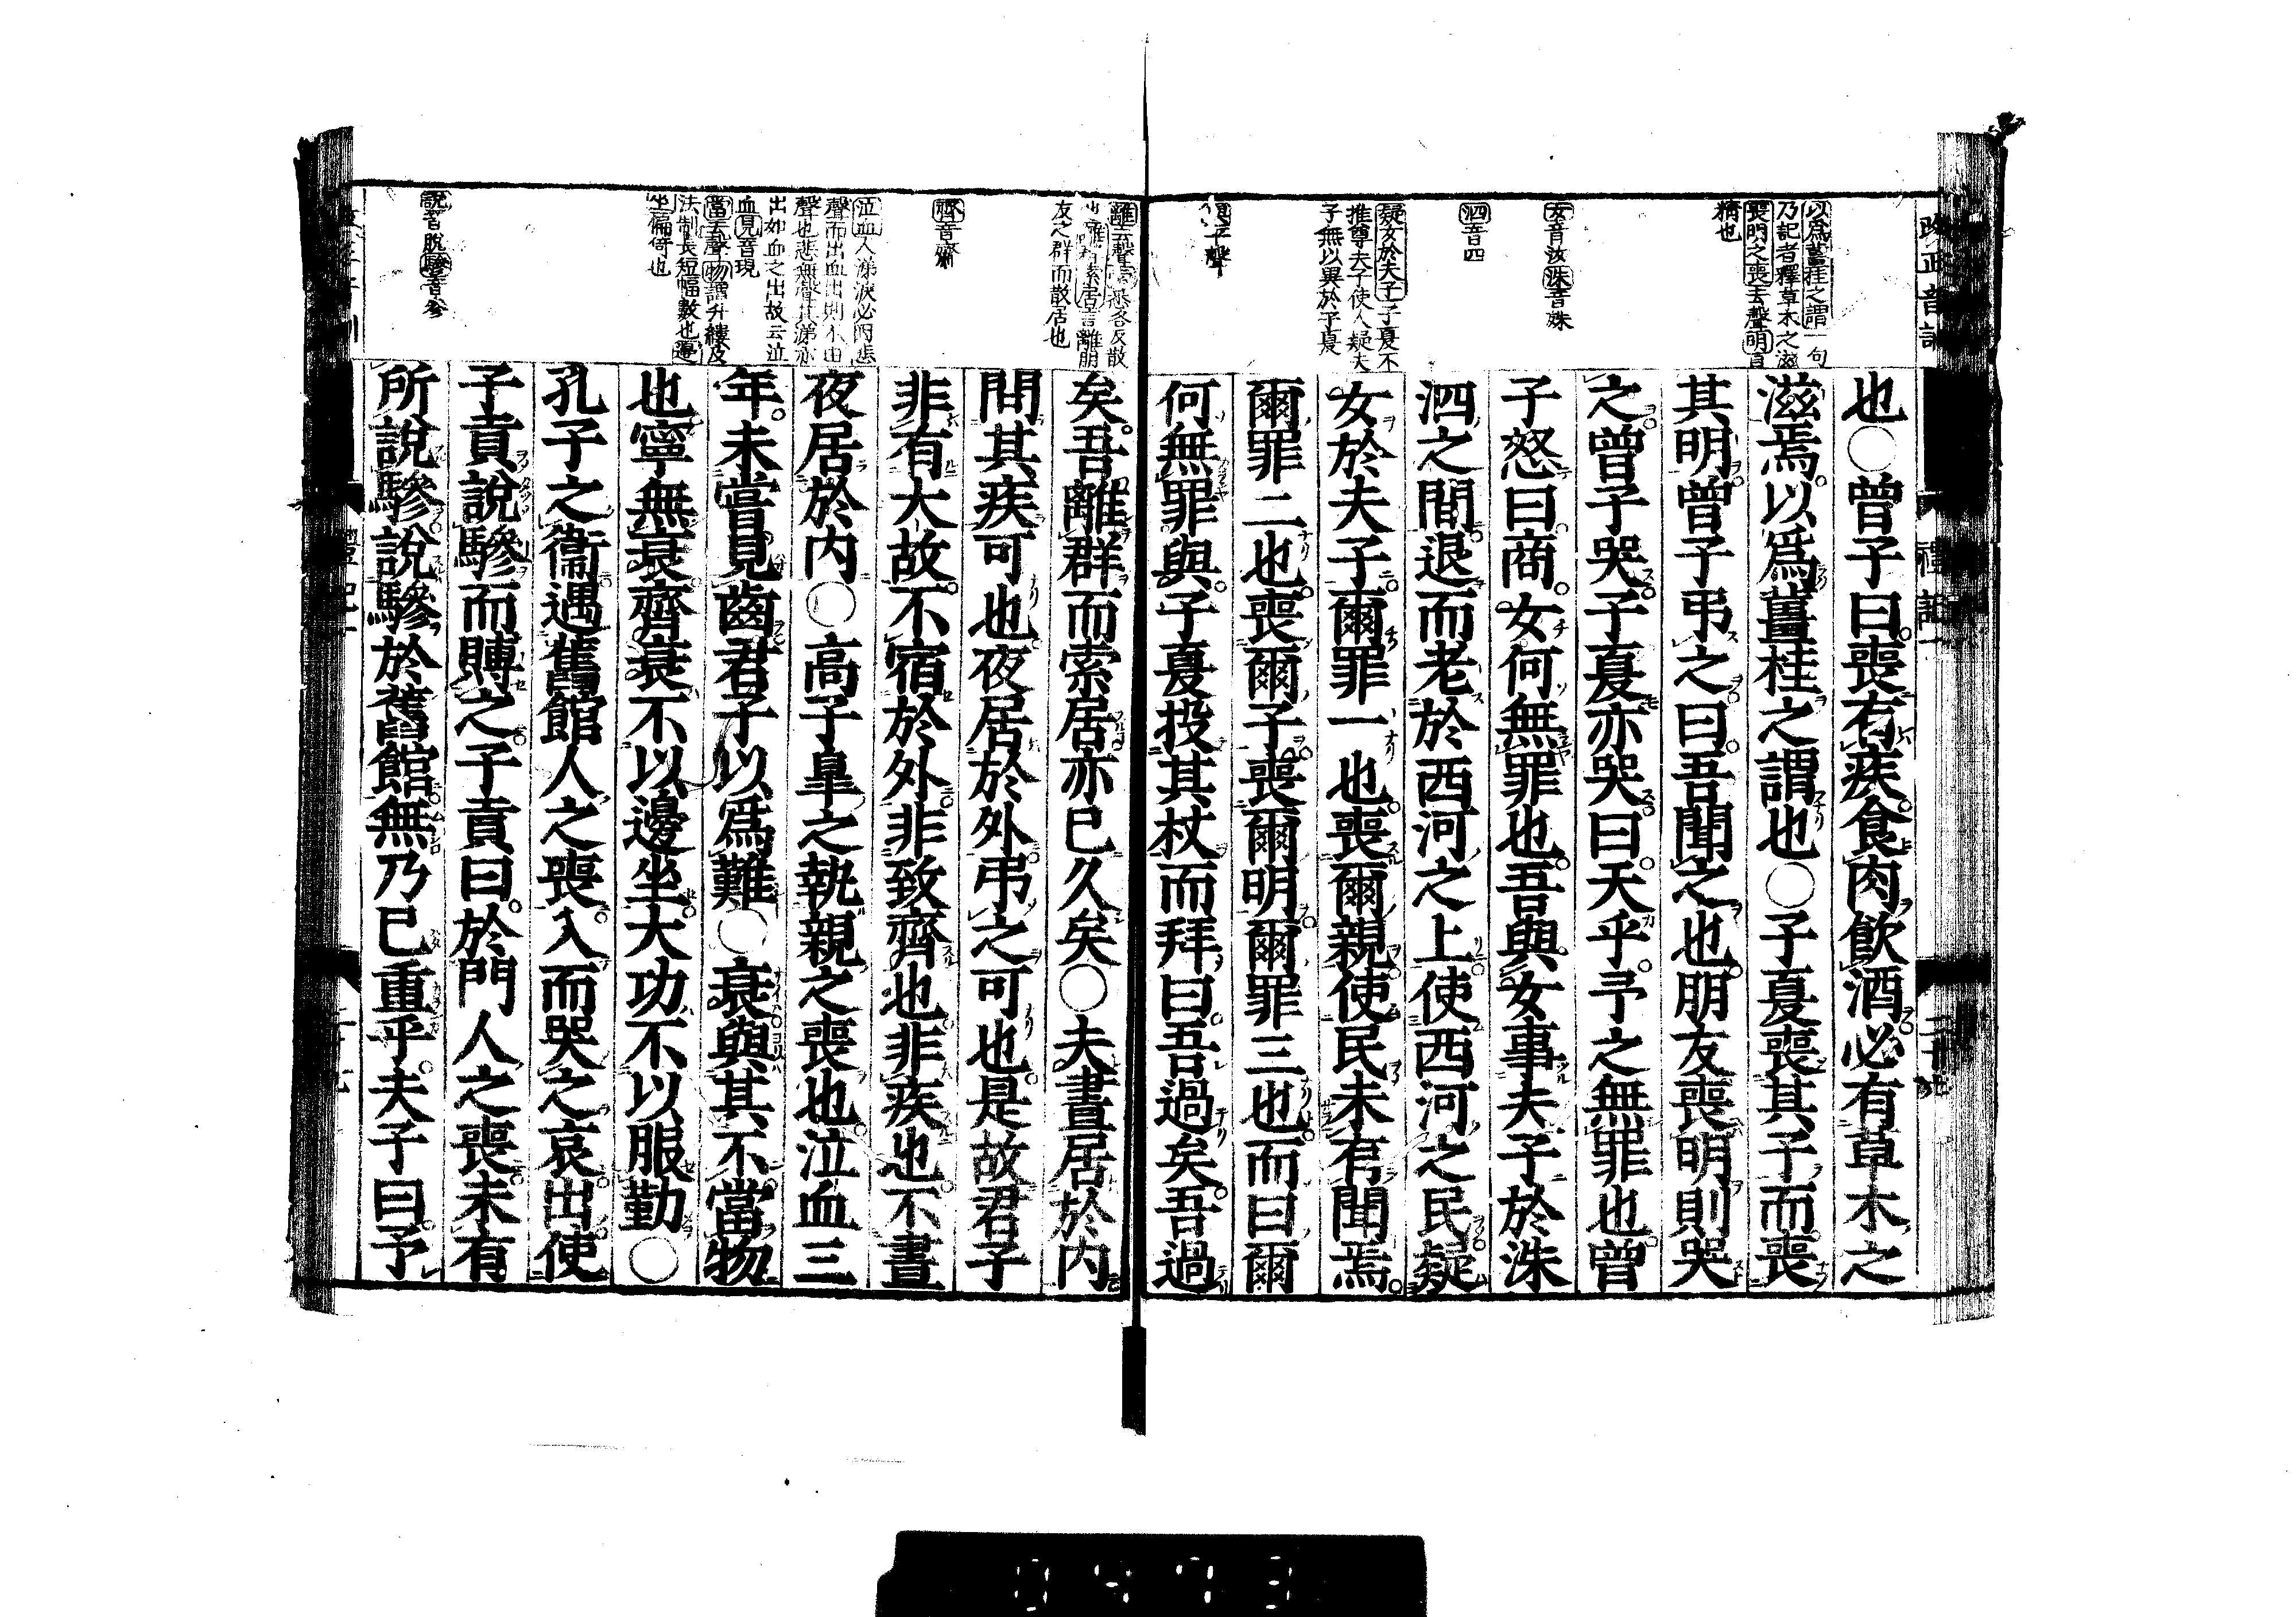 改正音訓
禮記一
以爲薑桂之謂一句
乃記者釋草木之滋
喪明之喪去聲明目
精也
女音汝洙音殊
泗音四
疑女於夫子子夏不
推尊夫子使人疑夫
子無以異於子夏
也○曾子曰喪有疾食肉飮酒必有草木之
滋焉以爲薑桂之謂也○子夏喪其子而喪
其明曾子弔之曰吾聞之也朋友喪明則哭
之曾子哭子夏亦哭曰天乎予之無罪也曾
子怒曰商女何無罪也吾與女事夫子於洙
泗之間退而老於西河之上使西河之民疑
女於夫子爾罪一也喪爾親使民未有聞焉
爾罪二也喪爾子喪爾明爾罪三也而曰爾
何無罪與子夏投其杖而拜曰吾過矣吾過
友之群而散居也
齊音齋
泣血人涕淚必因悲
聲而出血出則不由
聲也悲無聲其涕亦
出如血之出故云泣
血見音現
當去聲物謂升縷及
法制長短幅數也邊
坐偏倚也
說音脫驂音參
矣吾離群而索居亦已久矣○夫晝居於內
問其疾可也夜居於外弔之可也是故君子
非有大故不宿於外非致齊也非疾也不晝
夜居於內○高子皐之執親之喪也泣血三
年未嘗見齒君子以爲難○衰與其不當物
也寧無衰齊衰不以邊坐大功不以服勤○
孔子之衞遇舊館人之喪入而哭之哀出使
子貢說驂而賻之子貢曰於門人之喪未有
所說驂說驂於舊館無乃已重乎夫子曰予